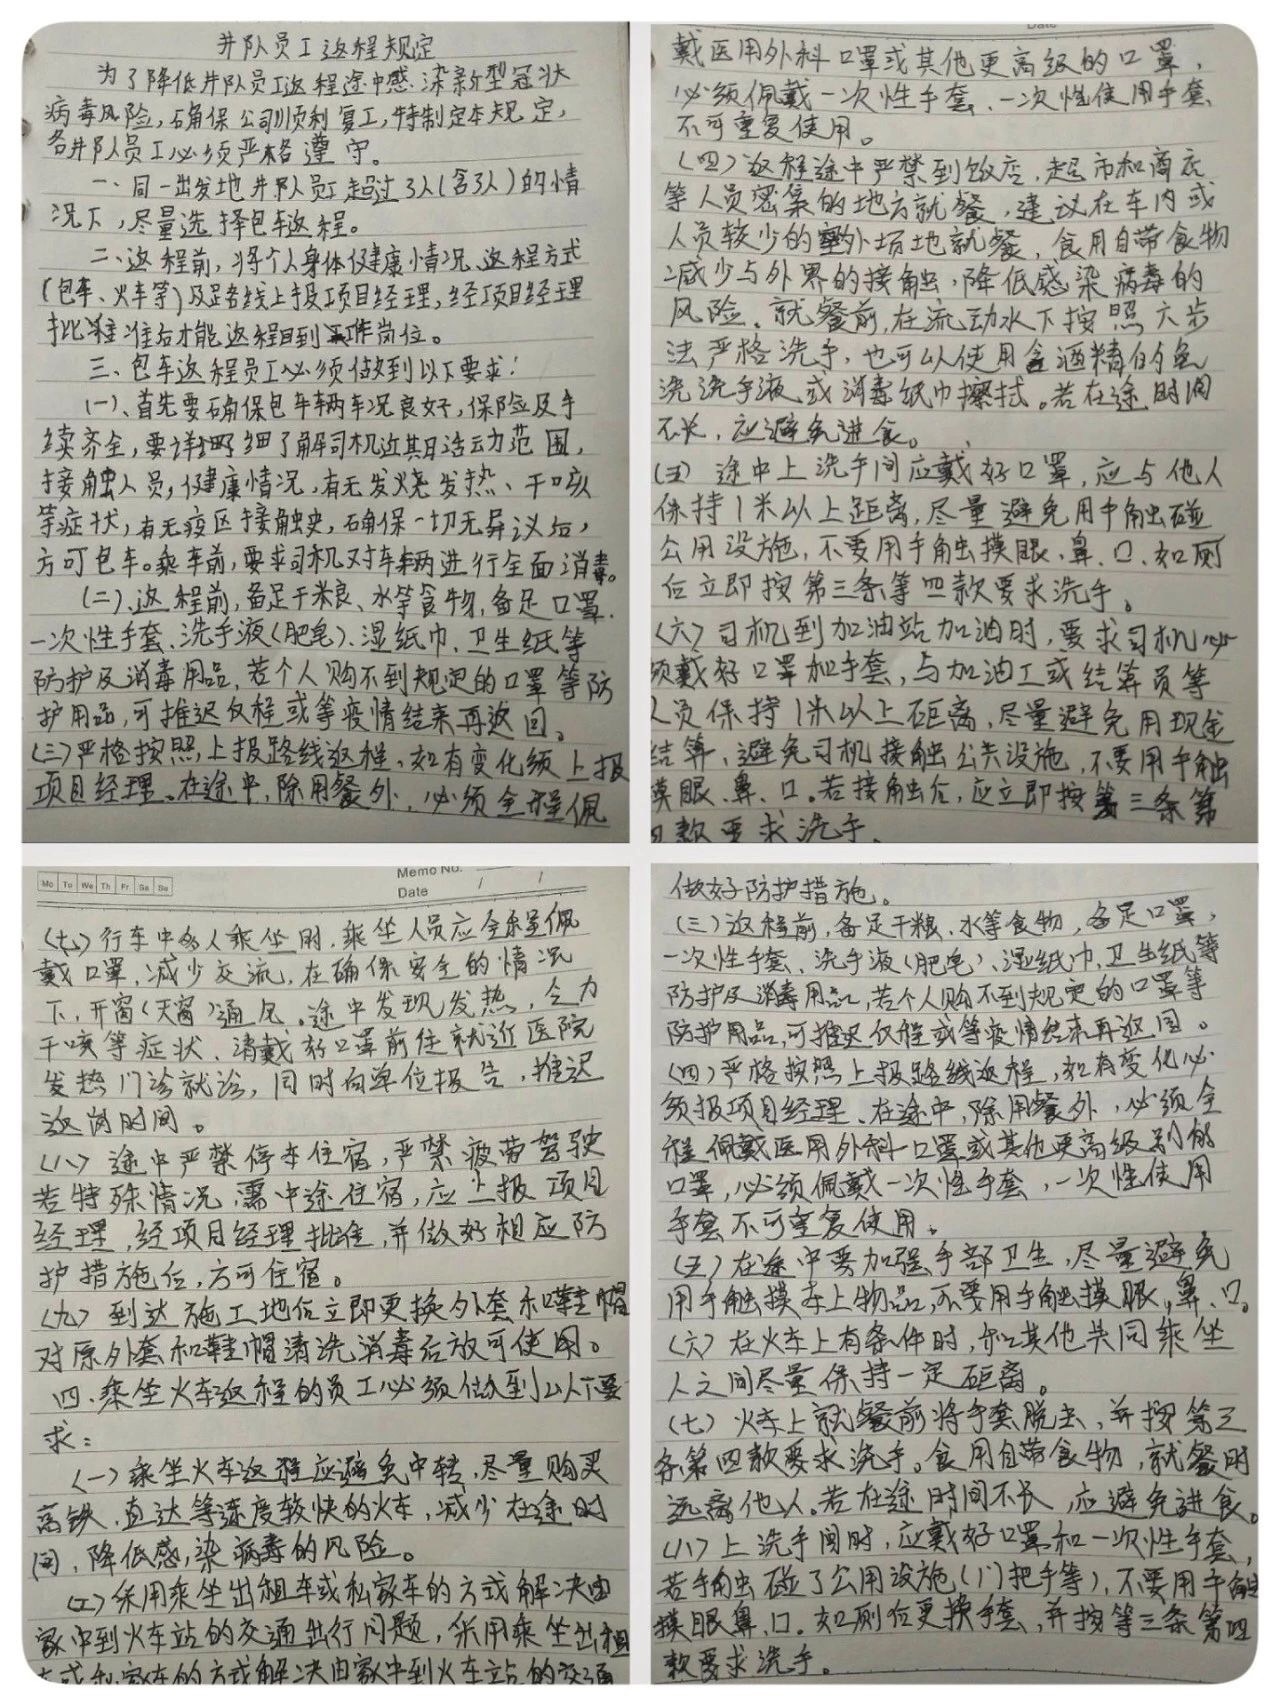 井队员工返程规定
为了降低井队员工返程途中感染新型冠状
病毒风险,确保公司顺利复工,特制定本规定,
各井队员工必须严格遵守。
一、同一出发地井队员工超过3人(含3人)的情
况下,尽量选择包车返程。
二、返程前,将个人身体健康情况、返程方式
(包车、火车等)及路线上报项目经理,经项目经理
批准后才能返程回到工作岗位。
三、包车返程员工必须做到以下要求:
(一)、首先要确保包车车辆车况良好,保险及手
续齐全,要详细了解司机近期活动范围,
接触人员,健康情况,有无发烧发热、干咳
等症状,有无疫区接触史,确保一切无异议后,
方可包车。乘车前,要求司机对车辆进行全面消毒。
(二)、返程前,备足干粮、水等食物,备足口罩、
一次性手套、洗手液(肥皂)、湿纸巾、卫生纸等
防护及消毒用品,若个人购不到规定的口罩等防
护用品,可推迟返程或等疫情结束再返回。
(三)严格按照上报路线返程,如有变化须上报
项目经理。在途中,除用餐外,必须全程佩
Date
戴医用外科口罩或其他更高级的口罩,
必须佩戴一次性手套、一次性使用手套
不可重复使用。
(四)返程途中严禁到饭店,超市和商店
等人员密集的地方就餐,建议在车内或
人员较少的室外场地就餐,食用自带食物
减少与外界的接触,降低感染病毒的
风险。就餐前,在流动水下按照六步
法严格洗手,也可以使用含酒精的免
洗洗手液或消毒纸巾擦拭。若在途时间
不长,应避免进食。
(五)途中上洗手间应戴好口罩,应与他人
保持1米以上距离,尽量避免用手触碰
公用设施,不要用手触摸眼、鼻、口、如厕
后立即按第三条等四款要求洗手。
(六)司机到加油站加油时,要求司机必
须戴好口罩和手套,与加油工或结算员等
人员保持1米以上距离,尽量避免用现金
结算,避免司机接触公共设施,不要用手触
摸眼、鼻、口。若接触后,应立即按第三条第
四款要求洗手。
Mo Tu We Th Fr Sa Su
Memo No.
Date / /
(七)行车中多人乘坐时,乘坐人员应全程佩
戴口罩,减少交流,在确保安全的情况
下,开窗(天窗)通风。途中发现发热,乏力
干咳等症状、请戴好口罩前往就近医院
发热门诊就诊,同时向单位报告,推迟
返岗时间。
(八)途中严禁停车住宿,严禁疲劳驾驶
若特殊情况,需中途住宿,应上报项目
经理,经项目经理批准,并做好相应防
护措施后,方可住宿。
(九)到达施工地后立即更换外套和鞋帽
对原外套和鞋帽清洗消毒后放可使用。
四、乘坐火车返程的员工必须做到以下要
求:
(一)乘坐火车返程应避免中转,尽量购买
高铁、直达等速度较快的火车,减少在途时
间,降低感染病毒的风险。
(二)采用乘坐出租车或私家车的方式解决由
家中到火车站的交通出行问题,采用乘坐出租
车或私家车的方式解决由家中到火车站的交通
做好防护措施。
(三)返程前,备足干粮、水等食物,备足口罩,
一次性手套、洗手液(肥皂)、湿纸巾、卫生纸等
防护及消毒用品,若个人购不到规定的口罩等
防护用品,可推迟返程或等疫情结束再返回。
(四)严格按照上报路线返程,如有变化必
须报项目经理、在途中,除用餐外,必须全
程佩戴医用外科口罩或其他更高级别的
口罩,必须佩戴一次性手套,一次性使用
手套不可重复使用。
(五)在途中要加强手部卫生,尽量避免
用手触摸车上物品,不要用手触摸眼,鼻、口。
(六)在火车上有条件时,和其他共同乘坐
人之间尽量保持一定距离。
(七)火车上就餐前将手套脱去,并按第三
条第四款要求洗手。食用自带食物,就餐时
远离他人。若在途时间不长,应避免进食。
(八)上洗手间时,应戴好口罩和一次性手套,
若手触碰了公用设施(门把手等),不要用手触
摸眼鼻、口。如厕后更换手套,并按等三条第四
款要求洗手。